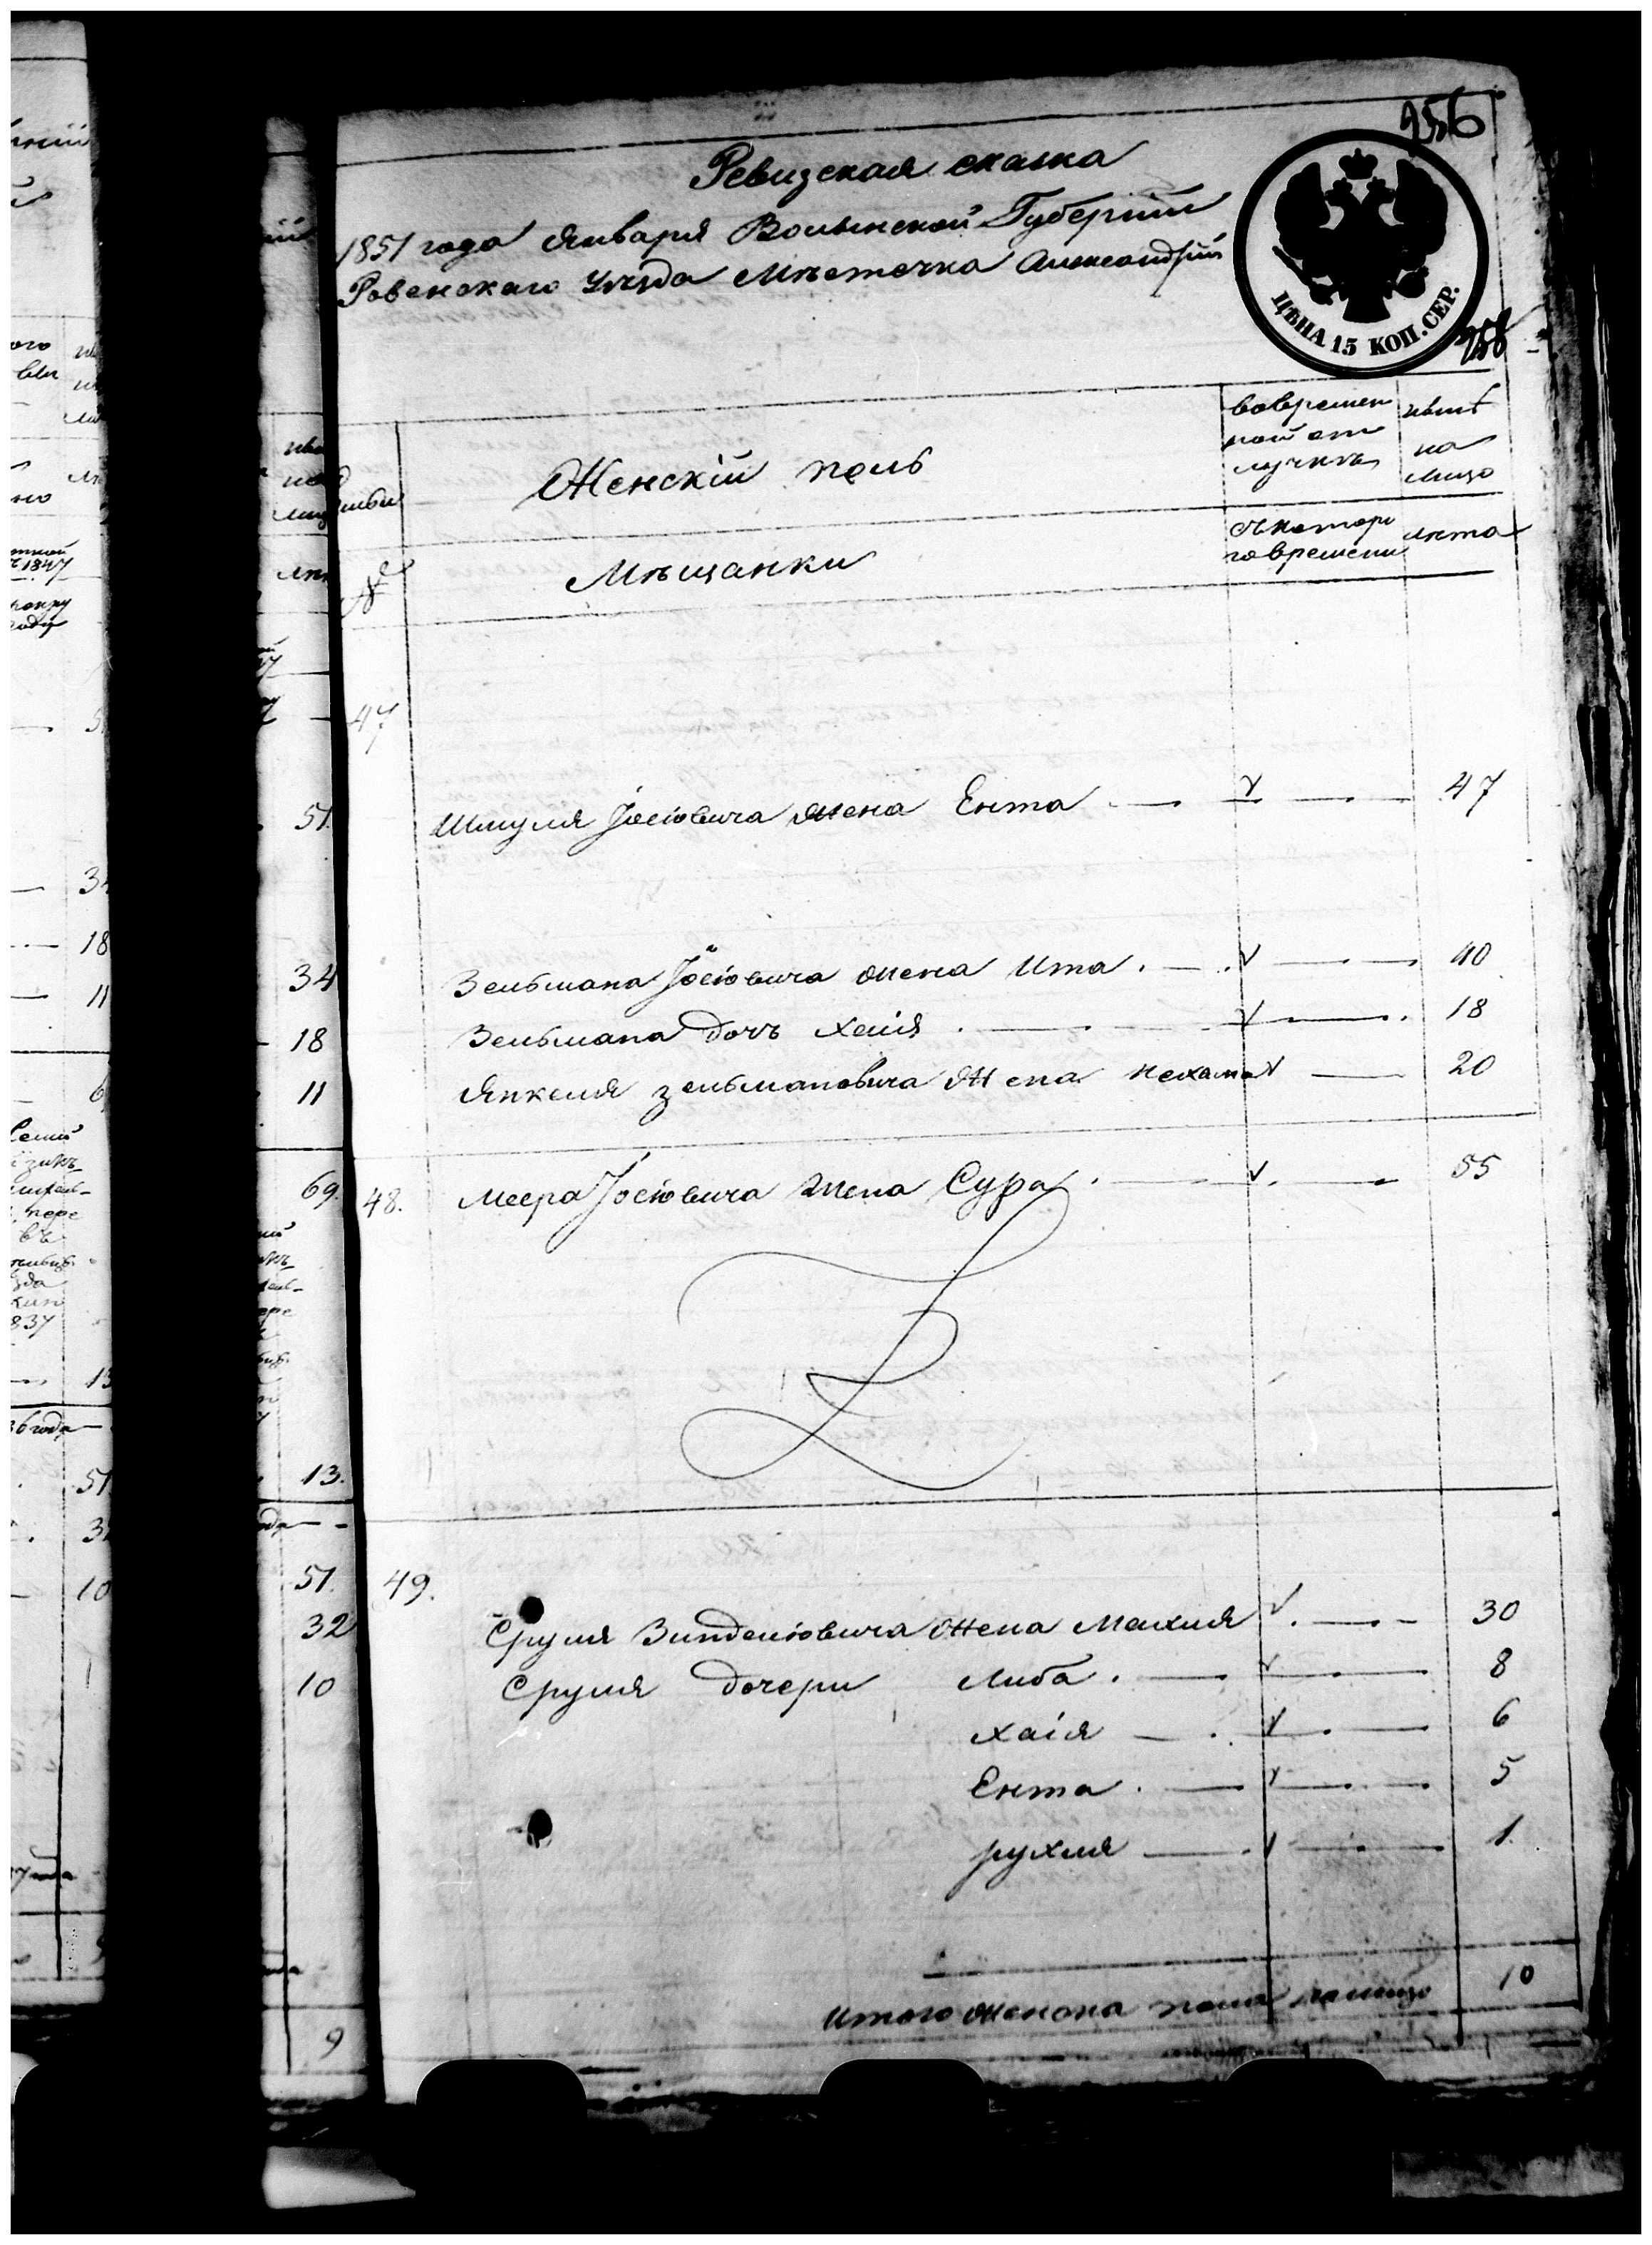 256
Ревизская сказка
1851 года Января Волынской Губернии
Ровенскаго Уѣзда Мѣстечка Александріи
ЦѢНА 15 КОП. СЕР.
258
Женскій полъ
вовремен
ной от
лучкѣ
нынѣ
на
лицо
№
Мѣщанки
Съкотора
говремени
лѣта
47
Шмуля Іосіовича жена Ента 47
Зельмана Іосіовича жена Ита 40
Зельмана дочь Хаія 18
Янкеля Зельмановича жена Нехама 20
48. Меера Іосіовича жена Сура 55
49.
Сруля Зинделіовича жена Малия 30
Сруля дочери Либа 8
Хаія 6
Ента 5
рухля 1
Итого женска пола налицо 10
51.
34
18
11
69.
13.
51.
32
10
9